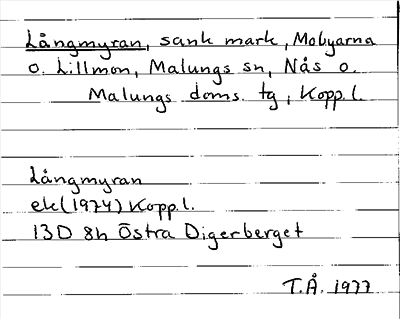 Långmyran, sank mark, Mobyarna
o. Lillmon, Malungs sn, Nås o.
Malungs doms. tg, Kopp. l.
Långmyran
ek (1974) Kopp. l.
13D 8h Östra Digerberget
T.Å. 1977